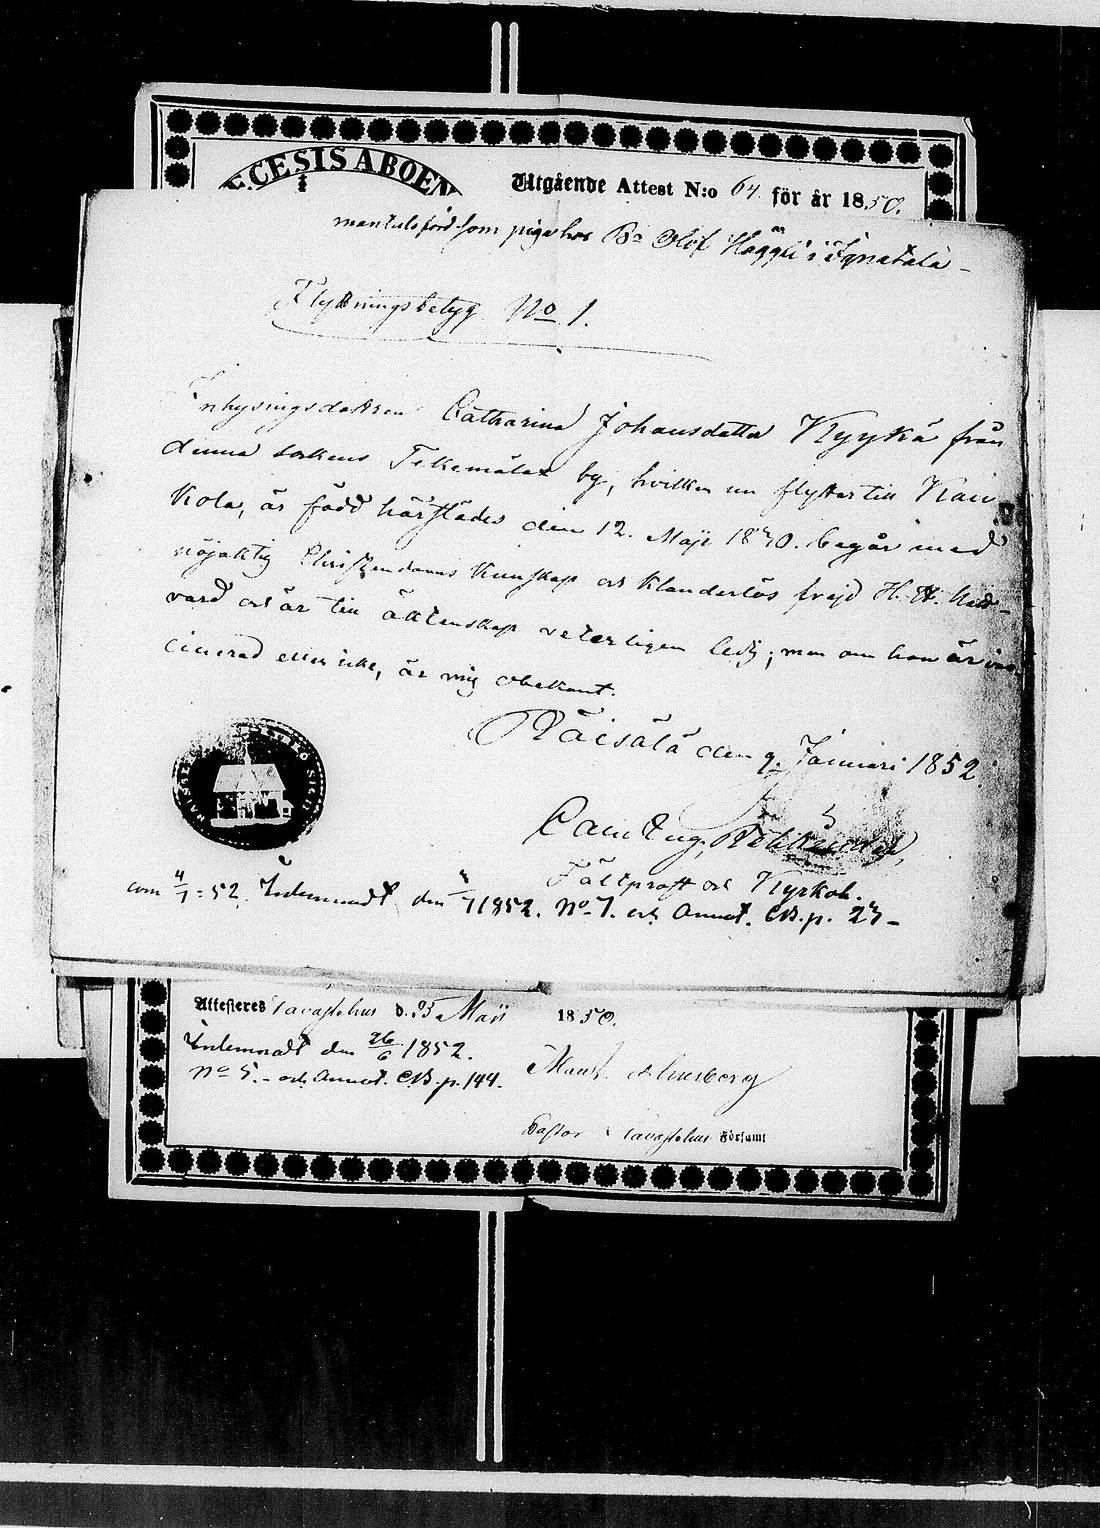 ECESIS ABOEN
Utgående Attest N:o 64 för år 1850.
mantalsförd som piga hos Bn Olof Häggli i Ignatala
Flyttningsbetyg No 1.
Inhysingsdottren Catharina Johansdotter Kyykä från
denna sockens Tekemälax by, hvilken nu flyttar till Kau
kola, är född härstädes den 12. Maji 1830. begår med
nöjaktig Christendoms kunskap och klanderlös frejd H. H. Natt-
vard och är till äktenskap veterligen ledig; men om hon är vac
cinerad eller icke, är mig obekant.
Räisälä den 9. Januari 1852
Fältprost och Kyrkoh.
Inlemnadt den 1852. No 1. och Annot. CB. p. 23
Attesteres Tavastehus d. 25 Maji 1850.
Inlemnadt den 26/6 1852.
No 5. och Annot. CB. p. 144.
Pastor i Tavastehus Församl